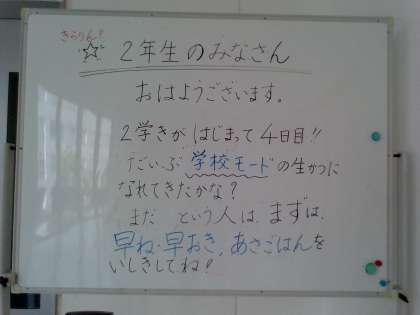 きらりん?
☆ 2年生のみなさん
おはようございます。
2学きがはじまって4日目!!
だいぶ学校モードの生かつに
なれてきたかな?
まだ という人は、まずは、
早ね・早おき、あさごはんを
いしきしてね!